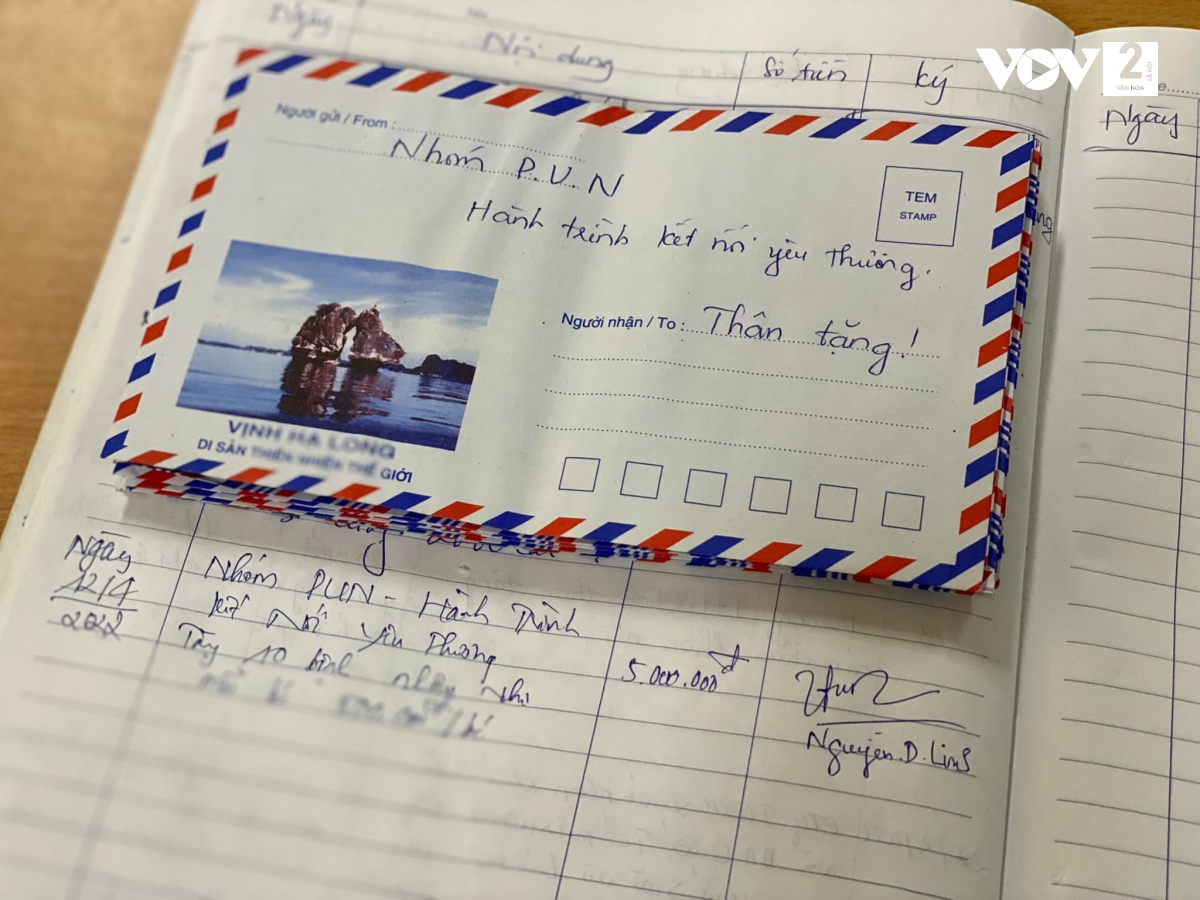 Ngày
Nội dung
Số tiền
ký
VOV2
VĂN HÓA
XÃ HỘI
Ngày
Người gửi / From :
Nhóm P.V.N
Hành trình kết nối yêu thương.
TEM
STAMP
Người nhận / To : Thân tặng!
VỊNH HẠ LONG
DI SẢN THIÊN NHIÊN THẾ GIỚI
Ngày
12/4
2022
Nhóm PVN - Hành Trình
kết Nối Yêu Thương
Tặng 10 bệnh nhân nhi
5.000.000đ
Nguyễn.D.Linh